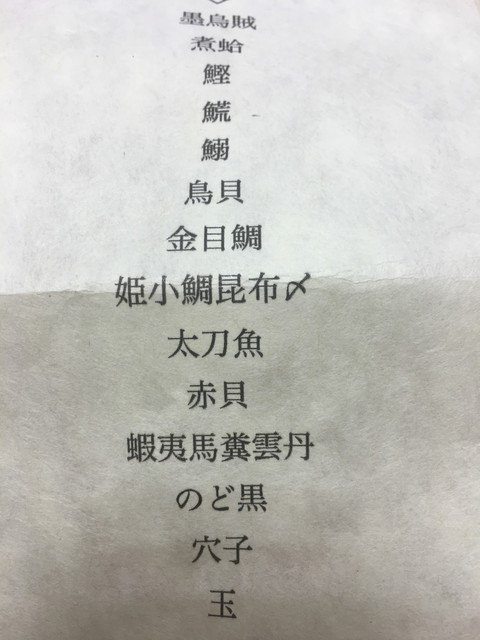 墨烏賊
煮蛤
鰹
鱚
鰯
鳥貝
金目鯛
姫小鯛昆布〆
太刀魚
赤貝
蝦夷馬糞雲丹
のど黒
穴子
玉